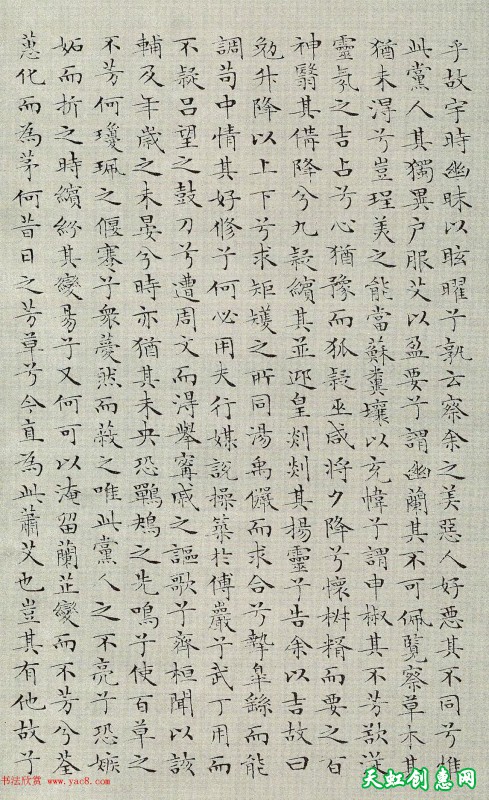 乎故宇時幽昧以眩曜兮孰云察余之美惡人好惡其不同兮惟
此黨人其獨異户服艾以盈要兮謂幽蘭其不可佩覽察草木其
猶未淂兮豈珵美之能當蘇糞壤以充幃兮謂申椒其不芳欲從
靈氛之吉占兮心猶豫而狐疑巫咸將夕降兮懷椒糈而要之百
神翳其備降兮九疑繽其並迎皇剡剡其揚靈兮告余以吉故曰
勉升降以上下兮求矩矱之所同湯禹儼而求合兮摯臯繇而能
調苟中情其好修兮何必用夫行媒說操築於傅巖兮武丁用而
不疑吕望之鼓刀兮遭周文而淂舉甯戚之謳歌兮齊桓聞以該
輔及年歲之未晏兮時亦猶其未央恐鷤鴂之先鳴兮使百草之
不芳何瓊珮之偃蹇兮衆薆然而蔽之唯此黨人之不亮兮恐嫉
妬而折之時繽紛其變易兮又何可以淹留蘭芷變而不芳兮荃
蕙化而為茅何昔日之芳草兮今直為此蕭艾也豈其有他故兮
书法欣赏 www.yac8.com
天虹创意网